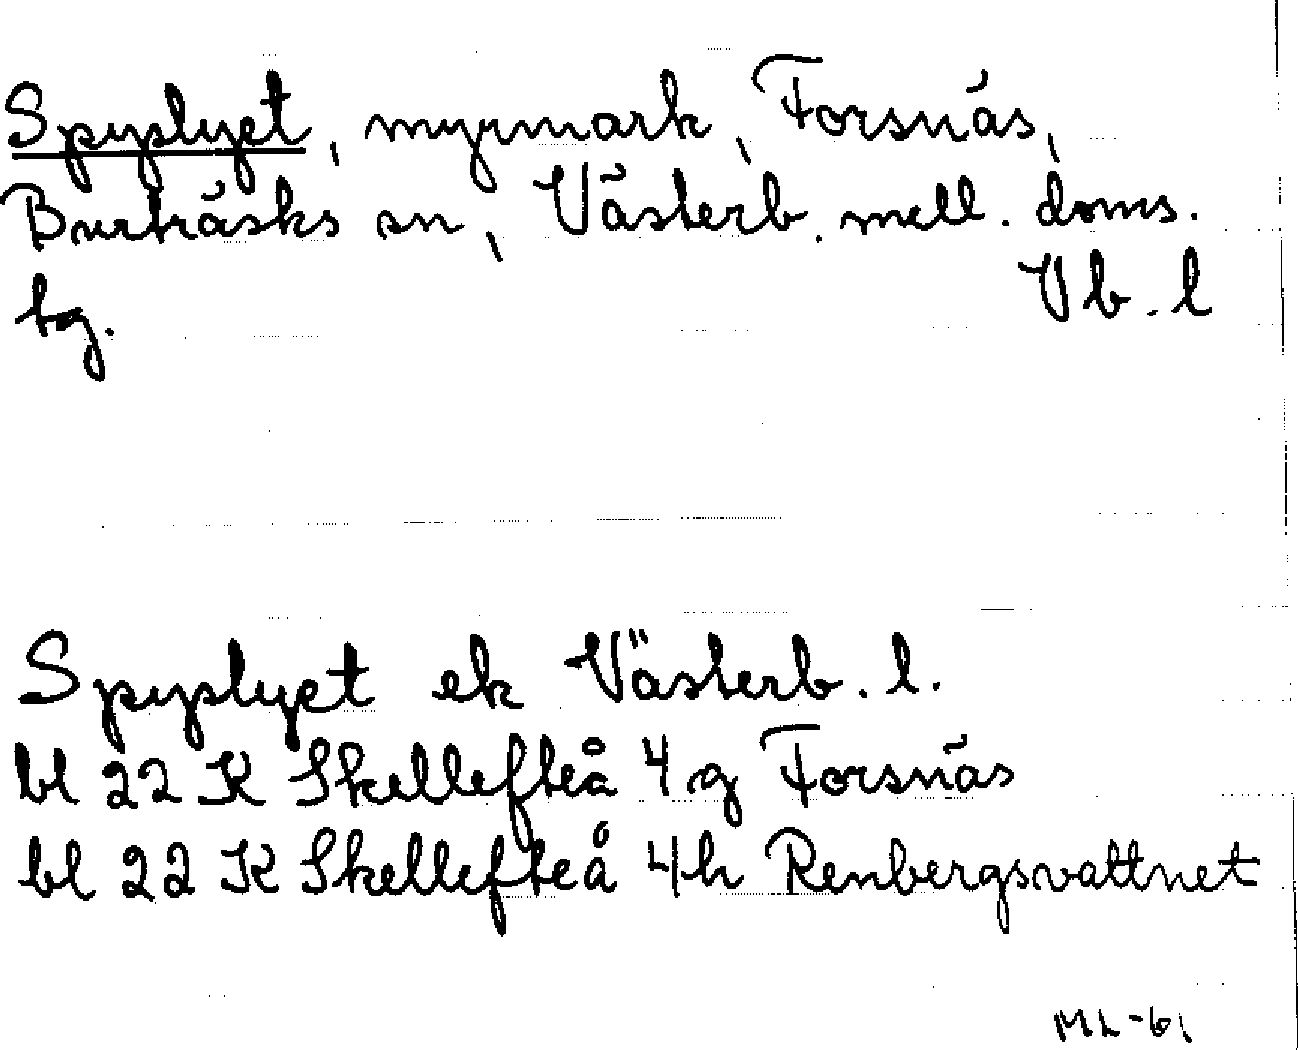 Spyplyet, myrmark, Forsnäs,
Burträsks sn, Västerb. mell. doms.
tg. Vb. l
Spyplyet ek Västerb. l.
bl 22 K Skellefteå 4 g Forsnäs
bl 22 K Skellefteå 4 h Renbergsvattnet
ML-61